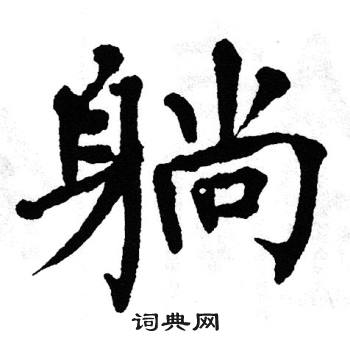 躺
词典网